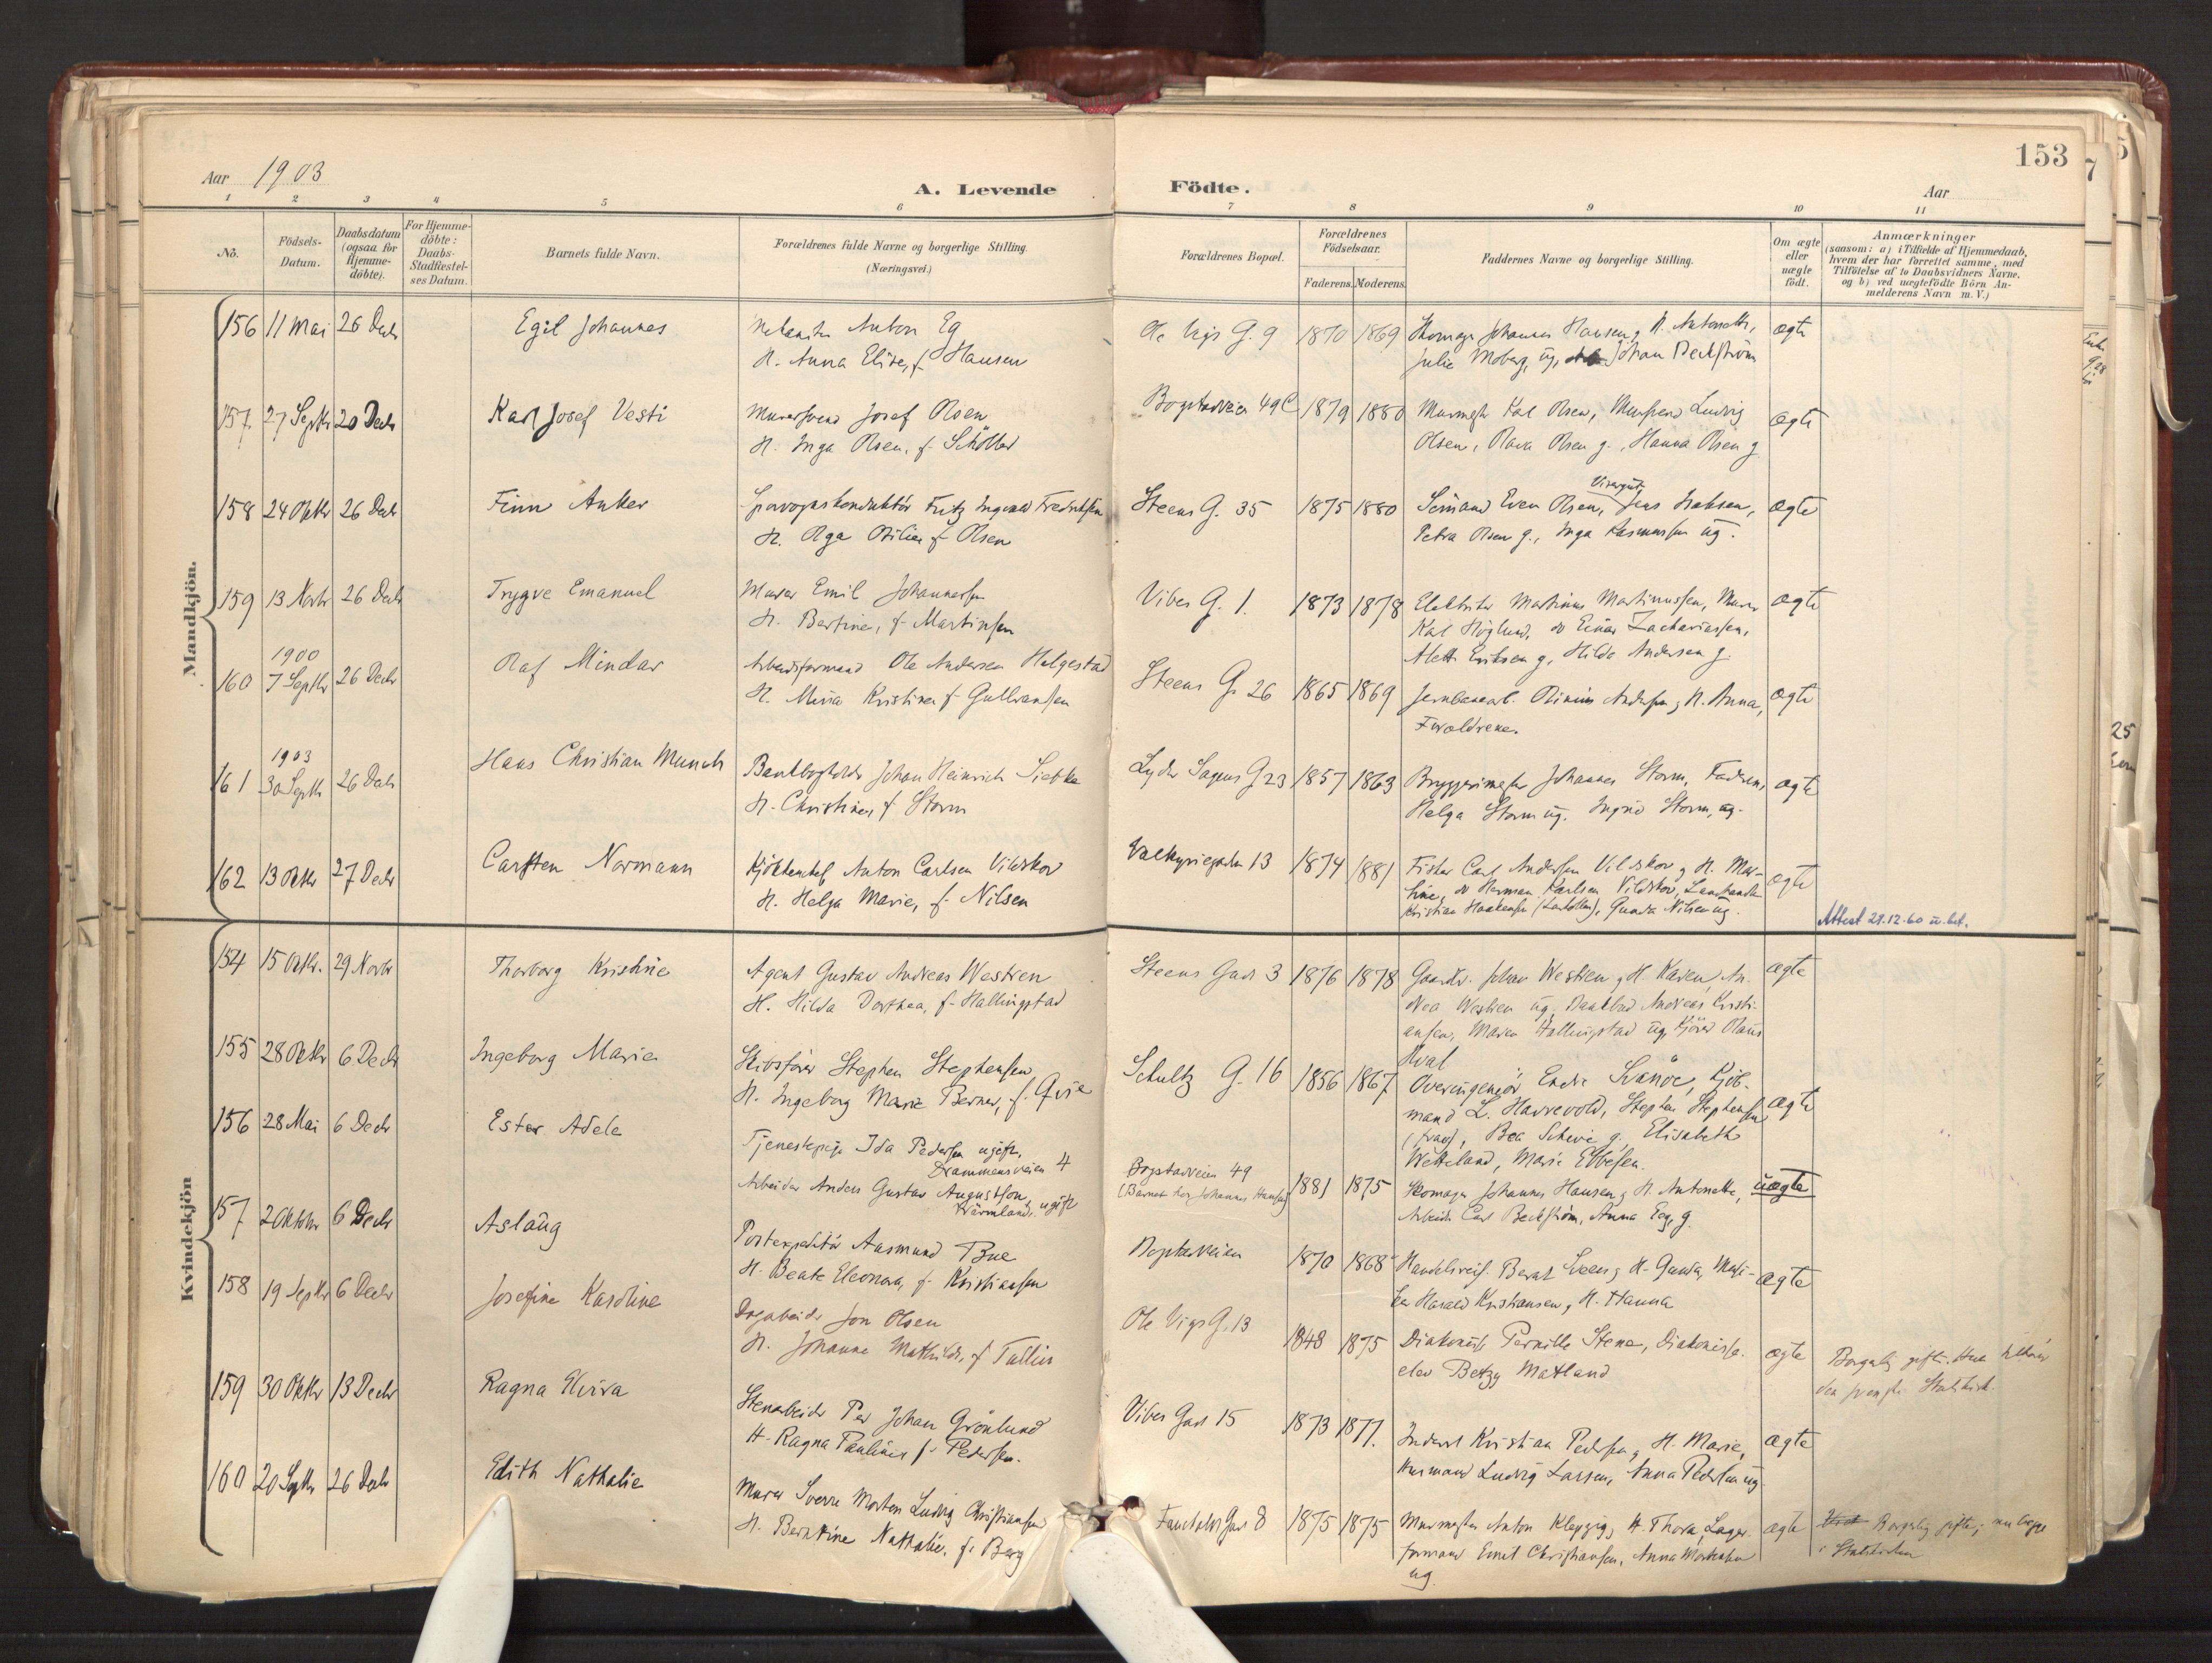 153
Aar 1903
A. Levende Födte.
Aar
1 2 3 4 5 6 7 8 9 10 11
No.
Födsels-
Datum.
Daabsdatum
(ogsaa for
Hjemme-
döbte).
For Hjemme-
döbte:
Daabs-
Stadfæstel-
ses Datum.
Barnets fulde Navn.
Forældrenes fulde Navne og borgerlige Stilling.
(Næringsvei.)
Forældrenes Bopæl.
Forældrenes
Födselsaar.
Faderens. Moderens.
Faddernes Navne og borgerlige Stilling.
Om ægte
eller
uægte
födt.
Anmærkninger
(saasom: a) i Tilfælde af Hjemmedaab,
hvem der har forrettet samme, med
Tilföielse af to Daabsvidners Navne.
og b) ved uægtefödte Börn An-
melderens Navn m. V.)
Mandkjön.
156 11 Mai 26 Decbr Egil Johannes
Anton Eg
H. Anna Elise, f. Hansen
Ole Vigs G. 9 1870 1869
Skomager Johannes Hansen, H. Antonette,
Julie Moberg, ug, Johan Beckström
ægte
157 27 Septbr 20 Decbr Karl Josef Vesti
Murersvend Josef Olsen
H. Inga Olsen, f. Schöller
Bogstadveien 49C 1879 1880
Murmester Karl Olsen, Mursvend Ludvig
Olsen, Olava Olsen g., Hanna Olsen g
ægte
158 24 Oktbr 26 Decbr Finn Anker
Sporvognskonduktör Fritz Ingvald Fredriksen
H. Olga Otilie, f. Olsen
Steens G. 35 1875 1880
Visergut
Sömand Even Olsen, Jens Isaksen,
Petra Olsen g., Inga Rasmussen ug.
ægte
159 13 Novbr 26 Decbr Trygve Emanuel
Murer Emil Johannessen
H. Bertine, f. Martinsen
Vibes G. 1. 1873 1878
Elektriker Martinus Martinussen, Murer
Karl Höglund, do Einar Zachariassen,
Aleth Eriksen g, Hilda Andersen g.
ægte
1900
160 7 Septbr 26 Decbr Olaf Mindar
Arbeidsformand Ole Andersen Helgestad
H. Mina Kristine, f. Gulbransen
Steens G. 26 1865 1869
Jernbanearb. Olinius Andersen, H. Anna,
Forældrene.
ægte
1903
161 30 Septbr 26 Decbr Hans Christian Munch
Bankbogholder Johan Heinrich Siebke
H. Christine, f. Storm
Lyder Sagens G 23 1857 1863
Bryggerimester Johannes Storm, Faderen,
Helga Storm ug. Ingrid Storm, ug.
ægte
162 13 Oktbr 27 Decbr Carsten Normann
Anton Carlsen Vildskov
H. Helga Marie, f. Nilsen
Valkyriegaden 13 1874 1881
Fisker Carl Andersen Vildskov, H. Mar-
tine, do Herman Karlsen Vildskov,
Kristian Haakensen, Gunda Nilsen ug.
ægte
Attest 29.12.60 u. bet.
Kvindekjön
154 15 Oktbr. 29 Novbr Thorborg Kristine
Agent Gustav Andreas Westren
H. Hilda Dorthea, f. Hallingstad
Steens Gade 3 1876 1878
Gaardbr. Johan Westren, H. Karen, An-
drea Westren ug, Andreas Kristi-
ansen, Maren Hallingstad ug, Olaus
Hval
ægte
155 28 Oktbr 6 Decbr Ingeborg Marie
Skibsförer Stephen Stephensen
H. Ingeborg Marie Berner, f. Qvie
Schultz G. 16 1856 1867
Overingeniör Endre Svanöe, Kjöb-
mand L. Harrevold, Stephen Stephensen
Bea Scheie g. Elisabeth
Wetteland, Marie Ebbesen.
ægte
156 28 Mai 6 Decbr Ester Adele
Tjenestepige Ida Pedersen ugift,
Drammensveien 4
Arbeider Anders Gustav Augustson,
Värmland, ugift
Bogstadveien 49
(Barnet hos Johannes Hansen)
1881 1875
Skomager Johannes Hansen, H. Antonette,
Arbeider Carl Beckström, Anna Eg, g.
uægte
157 2 Oktobr 6 Decbr Aslaug
Postexpeditör Aasmund Bue
H. Beate Eleonora, f. Kristiansen
Bogstadveien 1870 1868
Handelsreis. Berat Sveen, H. Gunda, Musi-
ker Harald Kristiansen, H. Hanna
ægte
158 19 Septbr 6 Decbr Josefine Karoline
Dagarbeider Jon Olsen
H. Johanne Mathilde, f. Tallus
Ole Vigs G. 13 1848 1875
Diakonisse Pernille Stene, Diakonisse-
elev Betzy Matland
ægte
Borgerlig gifte. Hun tilhörer
den svenske Statskirke.
159 30 Oktbr 13 Decbr Ragna Elvira
Stenarbeider Per Johan Grönlund
H. Ragna Pauline, f. Pedersen.
Vibes Gade 15 1873 1877.
Kristian Pedersen, H. Marie,
Husmand Ludvig Larsen, Anna Pedersen ug.
ægte
160 20 Septbr 26 Decbr Edith Nathalie
Murer Sverre Morten Ludvig Christiansen
H. Berntine Nathalie, f. Berg
Fauchalds Gade 8 1875 1875
Murmester Anton Klepzig, H. Thora, Lager-
formand Emil Christiansen, Anna
ug.
ægte
Borgerlig gifte; men begge
i Statskirken
25